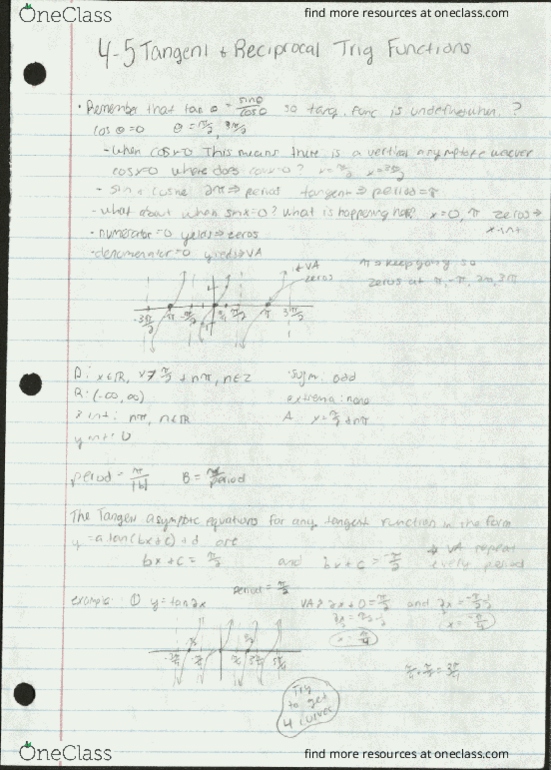 OneClass
find more resources at oneclass.com
4-5 Tangent & Reciprocal Trig Functions
• Remember that tan θ = sinθ/cosθ so tang. func is undefined when ?
cos θ=0 θ = π/2, 3π/2
- when cos=0 This means there is a vertical asymptote wherever
cosx=0 where does cosx=0? x=π/2 x=3π/2
- sin & cosine 2π ⇒ period tangent ⇒ period=π
- what about when sinx=0? what is happening here x=0, π zeros ⇒
x-int
- numerator=0 yields ⇒ zeros
- denominator=0 yields ⇒ VA
π → keep going so
zeros at π, -π, 2π, 3π
VA
zeros
-3π/2 -π -π/2 π/2 π 3π/2
D: x∈R, x≠ π/2 + nπ, n∈Z
Sym: odd
R: (-∞, ∞)
extrema: none
x int: nπ, n∈R
A x=π/2+nπ
y int: 0
period = π/|b| B = π/period
The Tangent asymptote equations for any tangent function in the form
y = a tan(bx+c)+d are
bx+c = π/2 and bx+c = -π/2
→ VA repeat
every period
example: ① y=tan2x
period = π/2
VA: 2x+0=π/2 and 2x=-π/2
x=π/4
x=-π/4
Try
to get
4 curves
OneClass
find more resources at oneclass.com